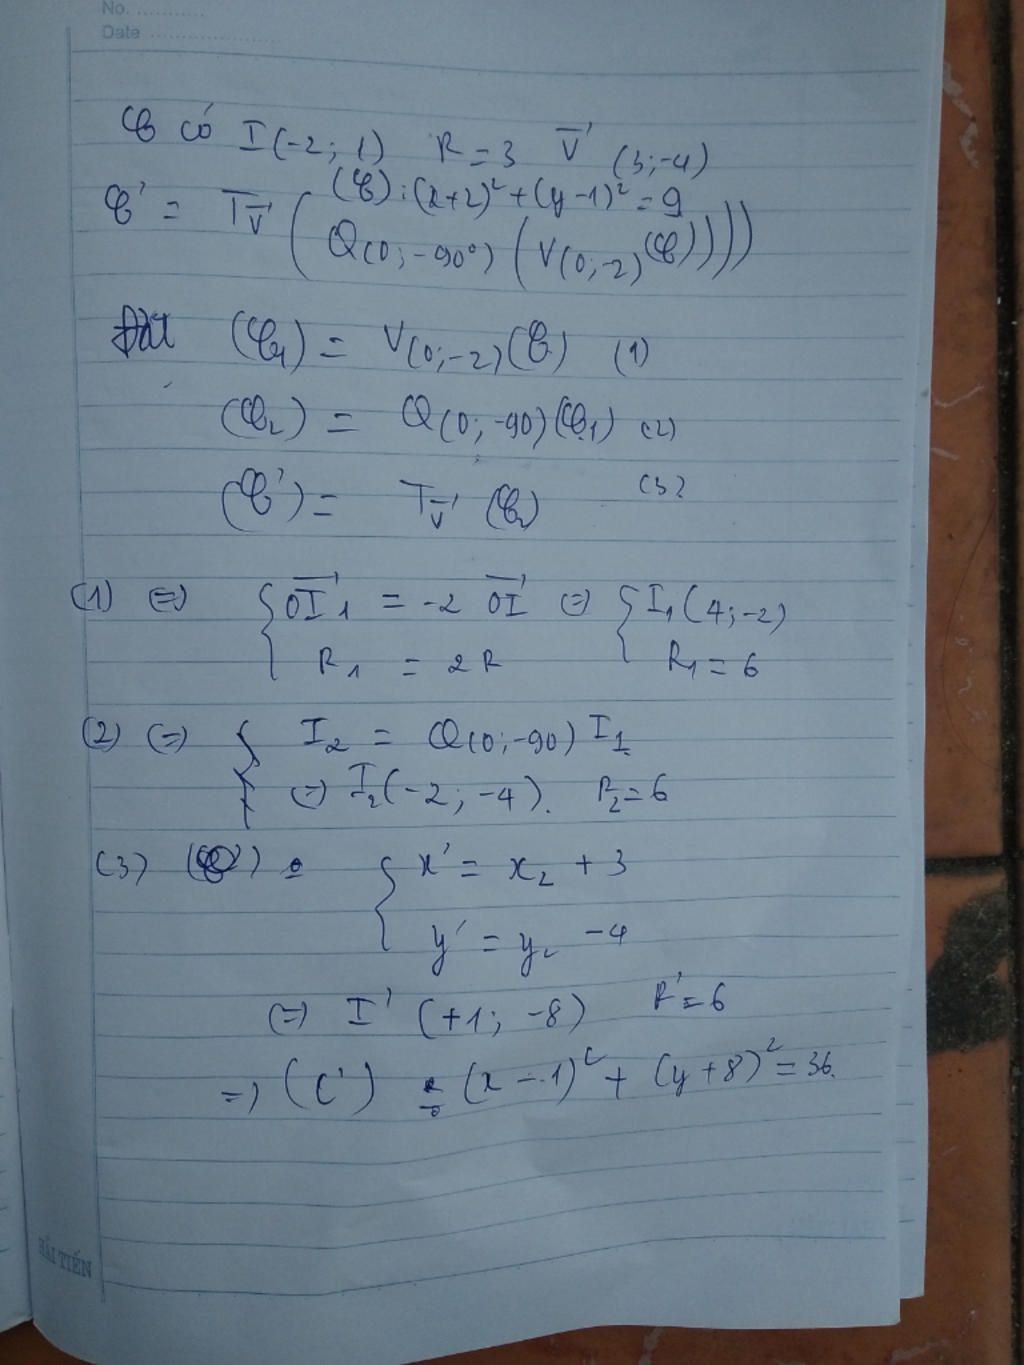 No. ...........
Date ......................
𝒞 có I(-2; 1) R = 3 V⃗ (3; -4)
(𝒞): (x+2)² + (y-1)² = 9
𝒞' = T_V⃗ ( Q(0; -90°) ( V(0; -2) (𝒞))))
Đặt (𝒞₁) = V(0; -2)(𝒞) (1)
(𝒞₂) = Q(0; -90)(𝒞₁) (2)
(𝒞') = T_V⃗ (𝒞₂) (3)
(1) ⇔ { OI₁⃗ = -2 OI⃗ ⇔ { I₁(4; -2)
R₁ = 2R R₁ = 6
(2) ⇔ { I₂ = Q(0; -90) I₁
⇔ I₂(-2; -4). R₂ = 6
(3) (𝒞') : { x' = x₂ + 3
y' = y₂ - 4
⇔ I' (+1; -8) R' = 6
⇒ (C') : (x - 1)² + (y + 8)² = 36.
HẢI TIẾN